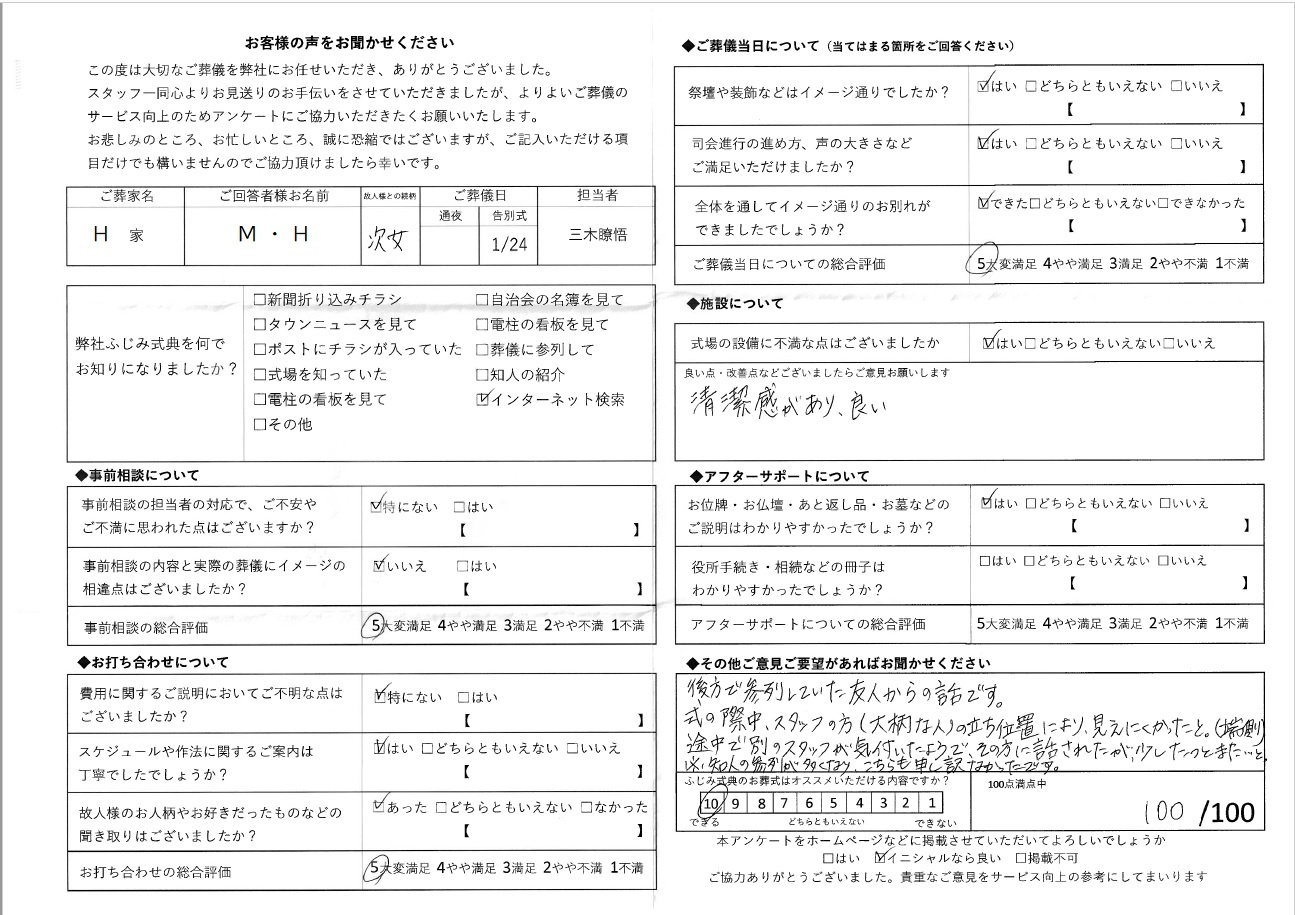 お客様の声をお聞かせください
この度は大切なご葬儀を弊社にお任せいただき、ありがとうございました。
スタッフ一同心よりお見送りのお手伝いをさせていただきましたが、よりよいご葬儀の
サービス向上のためアンケートにご協力いただきたくお願いいたします。
お悲しみのところ、お忙しいところ、誠に恐縮ではございますが、ご記入いただける項
目だけでも構いませんのでご協力頂けましたら幸いです。
ご葬家名 ご回答者様お名前 故人様との続柄 ご葬儀日 担当者
通夜 告別式
H 家 M・H 次女 1/24 三木暸悟
弊社ふじみ式典を何で
お知りになりましたか？
□新聞折り込みチラシ □自治会の名簿を見て
□タウンニュースを見て □電柱の看板を見て
□ポストにチラシが入っていた □葬儀に参列して
□式場を知っていた □知人の紹介
□電柱の看板を見て ☑インターネット検索
□その他
◆事前相談について
事前相談の担当者の対応で、ご不安や
ご不満に思われた点はございますか？
☑特にない □はい
【 】
事前相談の内容と実際の葬儀にイメージの
相違点はございましたか？
☑いいえ □はい
【 】
事前相談の総合評価 5大変満足 4やや満足 3満足 2やや不満 1不満
◆お打ち合わせについて
費用に関するご説明においてご不明な点は
ございましたか？
☑特にない □はい
【 】
スケジュールや作法に関するご案内は
丁寧でしたでしょうか？
☑はい □どちらともいえない □いいえ
【 】
故人様のお人柄やお好きだったものなどの
聞き取りはございましたか？
☑あった □どちらともいえない □なかった
【 】
お打ち合わせの総合評価 5大変満足 4やや満足 3満足 2やや不満 1不満
◆ご葬儀当日について（当てはまる箇所をご回答ください）
祭壇や装飾などはイメージ通りでしたか？
☑はい □どちらともいえない □いいえ
【 】
司会進行の進め方、声の大きさなど
ご満足いただけましたか？
☑はい □どちらともいえない □いいえ
【 】
全体を通してイメージ通りのお別れが
できましたでしょうか？
☑できた□どちらともいえない□できなかった
【 】
ご葬儀当日についての総合評価 5大変満足 4やや満足 3満足 2やや不満 1不満
◆施設について
式場の設備に不満な点はございましたか ☑はい□どちらともいえない□いいえ
良い点・改善点などございましたらご意見お願いします
清潔感があり、良い
◆アフターサポートについて
お位牌・お仏壇・あと返し品・お墓などの
ご説明はわかりやすかったでしょうか？
☑はい □どちらともいえない □いいえ
【 】
役所手続き・相続などの冊子は
わかりやすかったでしょうか？
□はい □どちらともいえない □いいえ
【 】
アフターサポートについての総合評価 5大変満足 4やや満足 3満足 2やや不満 1不満
◆その他ご意見ご要望があればお聞かせください
後方で参列していた友人からの話です。
式の際中、スタッフの方（大柄な人）の立ち位置により、見えにくかったと。（端側）
途中で別のスタッフが気付いたようで、その方に話されたが、少したつとまた…と。
知人の参列が多くなり、こちらも申し訳なかったです。
ふじみ式典のお葬式はオススメいただける内容ですか？
10 9 8 7 6 5 4 3 2 1
できる どちらともいえない できない
100点満点中
100 /100
本アンケートをホームページなどに掲載させていただいてよろしいでしょうか
□はい ☑イニシャルなら良い □掲載不可
ご協力ありがとうございました。貴重なご意見をサービス向上の参考にしてまいります